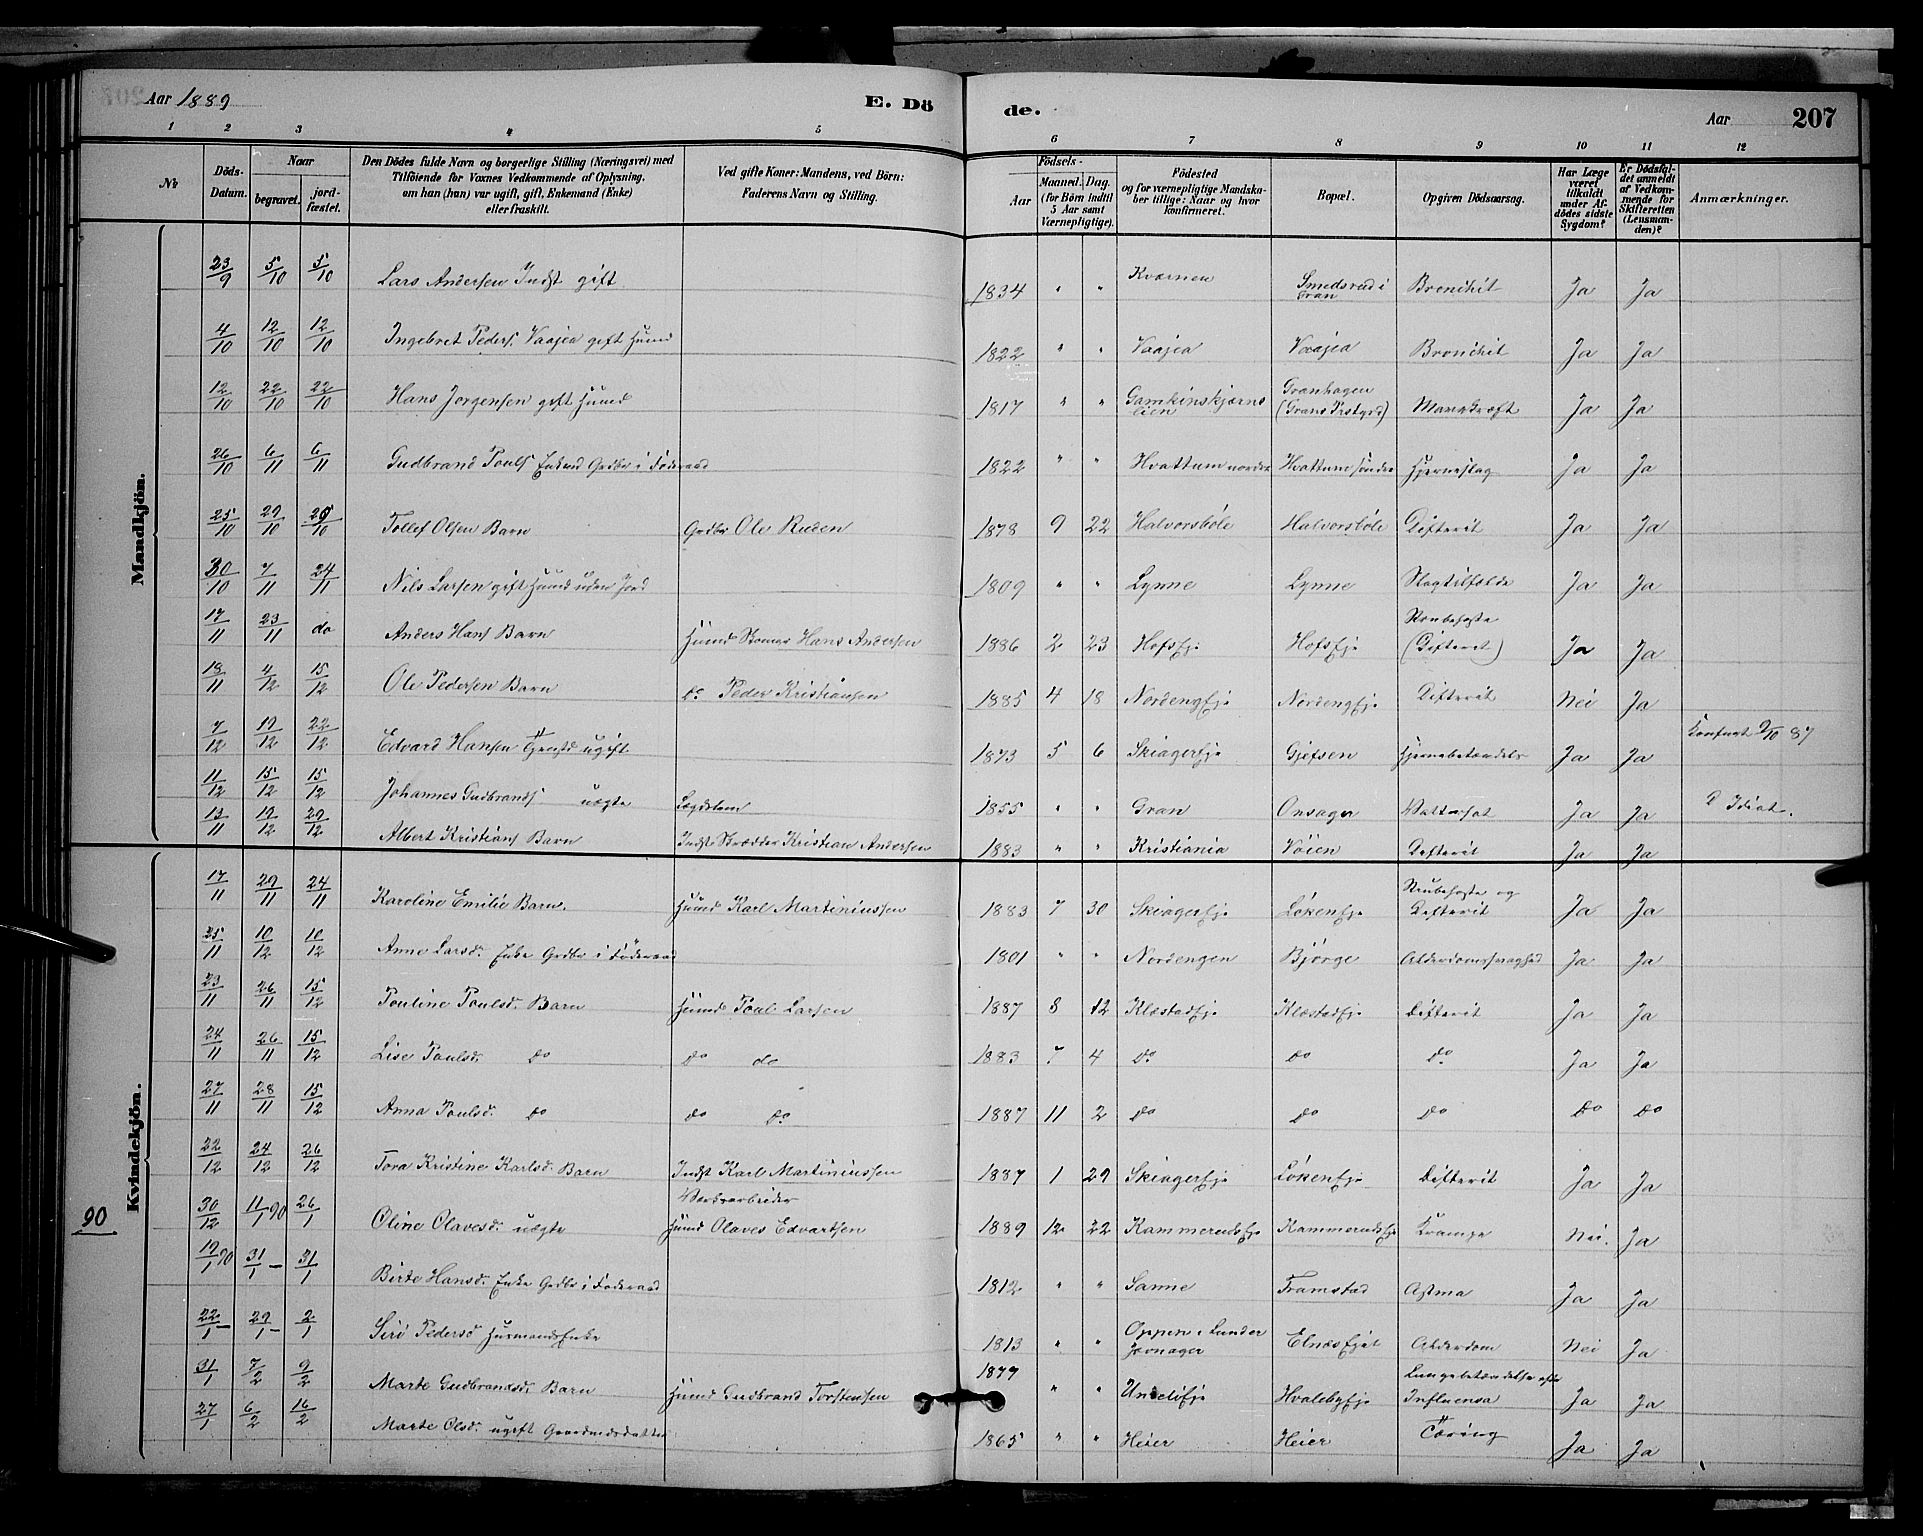 Aar 1889 E. Dö de. Aar 207
1 2 3 4 5 6 7 8 9 10 11 12
No
Döds-Datum.
Naar
begravet.
jord-fæstet.
Den Dödes fulde Navn og borgerlige Stilling (Næringsvei) med
Tilföiende for Voxnes Vedkommende af Oplysning,
om han (hun) var ugift, gift, Enkemand (Enke)
eller fraskilt.
Ved gifte Koner: Mandens, ved Börn:
Faderens Navn og Stilling.
Födsels-
Aar
Maaned. Dag.
(for Börn indtil
5 Aar samt
Værnepligtige).
Födested
og for værnepligtige Mandska-
ber tillige: Naar og hvor
konfirmeret.
Bopæl.
Opgiven Dödsaarsag.
Har Læge
været
tilkaldt
under Af-
dödes sidste
Sygdom?
Er Dödsfal-
det anmeldt
af Vedkom-
mende for
Skifteretten
(Lensman-
den)?
Anmærkninger.
Mandkjön.
23/9 5/10 5/10 Lars Andersen Indst gift 1834 " " Kværnen Smedsrud i Gran Bronchit Ja Ja
4/10 12/10 12/10 Ingebret Peders. Vaajea gift Husmd 1822 " " Vaajea Vaajea Bronchit Ja Ja
12/10 22/10 22/10 Hans Jørgensen gift Husmd 1817 " " Gamkinskjærns eien Granhagen (Grans Prstgrd) Mavekræft Ja Ja
26/10 6/11 6/11 Gudbrand Pouls Enkmd Grdbr i Føderaad 1822 " " Hvattum nordre Hvattum søndre Hjerneslag Ja Ja
25/10 29/10 29/10 Tollef Olsen Barn Grdbr Ole Ruden 1878 9 22 Halvorsbøle Halvorsbøle Difterit Ja Ja
30/10 7/11 24/11 Nils Larsen gift Husmd uden Jord 1809 " " Lynne Lynne Slagtilfælde Ja Ja
17/11 23/11 do Anders Hans Barn Husmd Skomgr Hans Andersen 1886 2 23 Hofsej. Hofsej. Strubehoste (Difterit) Ja Ja
18/11 4/12 15/12 Ole Pedersen Barn do Peder Kristiansen 1885 4 18 Nordengej. Nordengej. Difterit Nei Ja
7/12 19/12 22/12 Edvard Hansen ugift 1873 5 6 Skiagerej. Gjefsen Hjernebetændelse Ja Ja Konfirmt 2/10 87
11/12 15/12 15/12 Johannes Gudbrands uægte Lægdslem 1855 " " Gran Onsager Vattersot Ja Ja Idiot.
13/11 19/12 29/12 Albert Kristians Barn Indst Skrædder Kristian Andersen 1883 " " Kristiania Vøien Difterit Ja Ja
Kvindekjön.
17/11 29/11 24/11 Karoline Emilie Barn. Husmd Karl Martiniussen 1883 7 30 Skiagerej. Løkenej. Strubehoste og Difterit Ja Ja
25/11 10/12 10/12 Anne Larsd. Enke Grdbr i Føderaad 1801 " " Nordengen Bjørge Alderdomssvaghed Ja Ja
23/11 26/11 15/12 Pouline Poulsd. Barn Husmd Poul Larsen 1887 8 12 Klæstadej. Klæstadej. Difterit Ja Ja
24/11 26/11 15/12 Lise Poulsd. do do do 1883 7 4 do do do Ja Ja
27/11 28/11 15/12 Anna Poulsd. do do do 1887 11 2 do do do do do
22/12 24/12 26/12 Tora Kristine Karlsd. Barn Indst Karl Martiniussen 1887 1 29 Skiagerej. Løkenej. Difterit Ja Ja
90 30/12 11/1 90 26/1 Oline Olavesd. uægte Verksarbeider Husmd Olaves Edvartsen 1889 12 22 Kammerudsej. Kammerudsej. Krampe Nei. Ja
19/1 90 31/1 – 31/1 Birte Hansd. Enke Grdbr i Føderaad 1812 " " Sanne Framstad Astma Ja Ja
22/1 – 29/1 – 2/1 Siri Pedersd Husmandsenke 1813 " " Oppen i Lunder Jevnager Elnæsejet Alderdom Nei Ja
31/1 7/2 9/2 Marte Gudbrandsd. Barn Husmd Gudbrand Torstensen 1877 " " Undelief. Hvalebyej. Lungebetændelse efter Influensa Ja Ja
27/1 6/2 16/2 Marte Olsd. ugift Gaardmdsdatter 1865 " " Heier Heier Tæring Ja Ja